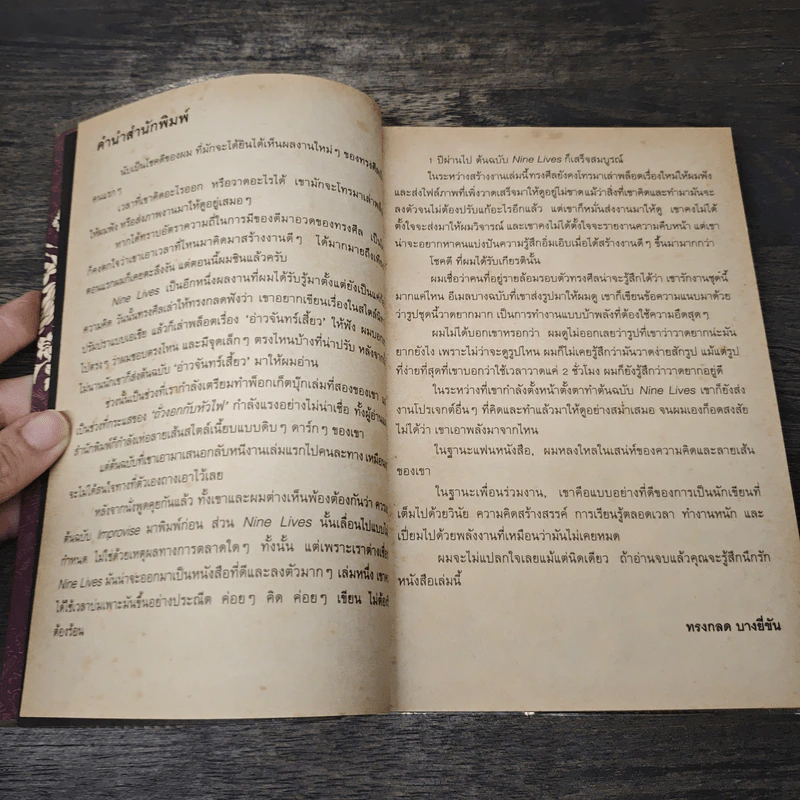 คำนำสำนักพิมพ์
นับเป็นโชคดีของผม ที่มักจะได้ยินได้เห็นผลงานใหม่ๆ ของทรงศีล
คนแรกๆ
เวลาที่เขาคิดอะไรออก หรือวาดอะไรได้ เขามักจะโทรมาเล่าพล็อต
ให้ผมฟัง หรือส่งภาพงานมาให้ดูอยู่เสมอๆ
หากใครทราบอัตราความถี่ในการมีของดีมาอวดของทรงศีล เป็น
ก็คงตกใจว่าเขาเอาเวลาที่ไหนมาคิดมาสร้างงานดีๆ ได้มากมายถึงเพียง
ตอนแรกผมก็เคยตะลึงงัน แต่ตอนนี้ผมชินแล้วครับ
Nine Lives เป็นอีกหนึ่งผลงานที่ผมได้รับรู้มาตั้งแต่ยังเป็นแค่
ความคิด วันนั้นทรงศีลเล่าให้ทรงกลดฟังว่า เขาอยากเขียนเรื่องในสไตล์
ปรัมปราแบบเอเชีย แล้วก็เล่าพล็อตเรื่อง 'อ่าวจันทร์เสี้ยว' ให้ฟัง ผมบอก
ไปตรงๆ ว่าผมชอบตรงไหน และมีจุดเล็กๆ ตรงไหนบ้างที่น่าปรับ หลังจาก
ไม่นานนักเขาก็ส่งต้นฉบับ 'อ่าวจันทร์เสี้ยว' มาให้ผมอ่าน
ช่วงนั้นเป็นช่วงที่เรากำลังเตรียมทำพ็อกเก็ตบุ๊กเล่มที่สองของเขา
เป็นช่วงที่กระแสของ 'ถั่วงอกกับหัวไฟ' กำลังแรงอย่างไม่น่าเชื่อ ทั้งผู้อ่าน
สำนักพิมพ์ก็กำลังเห่อลายเส้นสไตล์เนี้ยบแบบดิบๆ ดาร์กๆ ของเขา
แต่ต้นฉบับที่เขาเอามาเสนอกลับหนีงานเล่มแรกไปคนละทาง เหมือน
จะไม่ได้สนใจทางที่ตัวเองถางเอาไว้เลย
หลังจากนั่งพูดคุยกันแล้ว ทั้งเขาและผมต่างเห็นพ้องต้องกันว่า ควร
ต้นฉบับ Improvise มาพิมพ์ก่อน ส่วน Nine Lives นั้นเลื่อนไปแบบไม่
กำหนด ไม่ใช่ด้วยเหตุผลทางการตลาดใดๆ ทั้งนั้น แต่เพราะเราต่างเชื่อ
Nine Lives มันน่าจะออกมาเป็นหนังสือที่ดีและลงตัวมากๆ เล่มหนึ่ง
ได้ใช้เวลาบ่มเพาะมันขึ้นอย่างประณีต ค่อยๆ คิด ค่อยๆ เขียน ไม่ต้อง
ต้องร้อน
1 ปีผ่านไป ต้นฉบับ Nine Lives ก็เสร็จสมบูรณ์
ในระหว่างสร้างงานเล่มนี้ทรงศีลยังคงโทรมาเล่าพล็อตเรื่องใหม่ให้ผมฟัง
และส่งไฟล์ภาพที่เพิ่งวาดเสร็จมาให้ดูอยู่ไม่ขาดแม้ว่าสิ่งที่เขาคิดและทำมามันจะ
ลงตัวจนไม่ต้องปรับแก้อะไรอีกแล้ว แต่เขาก็หมั่นส่งงานมาให้ดู เขาคงไม่ได้
ตั้งใจจะส่งมาให้ผมวิจารณ์ และเขาคงไม่ได้ตั้งใจจะรายงานความคืบหน้า แต่เขา
น่าจะอยากหาคนแบ่งปันความรู้สึกอิ่มเอิบเมื่อได้สร้างงานดีๆ ขึ้นมามากกว่า
โชคดี ที่ผมได้รับเกียรตินั้น
ผมเชื่อว่าคนที่อยู่รายล้อมรอบตัวทรงศีลน่าจะรู้สึกได้ว่า เขารักงานชุดนี้
มากแค่ไหน อีเมลบางฉบับที่เขาส่งรูปมาให้ผมดู เขาก็เขียนข้อความแนบมาด้วย
ว่ารูปชุดนี้วาดยากมาก เป็นการทำงานแบบบ้าพลังที่ต้องใช้ความอึดสุดๆ
ผมไม่ได้บอกเขาหรอกว่า ผมดูไม่ออกเลยว่ารูปที่เขาว่าวาดยากน่ะมัน
ยากยังไง เพราะไม่ว่าจะดูรูปไหน ผมก็ไม่เคยรู้สึกว่ามันวาดง่ายสักรูป แม้แต่รูป
ที่ง่ายที่สุดที่เขาบอกว่าใช้เวลาวาดแค่ 2 ชั่วโมง ผมก็ยังรู้สึกว่าวาดยากอยู่ดี
ในระหว่างที่เขากำลังตั้งหน้าตั้งตาทำต้นฉบับ Nine Lives เขาก็ยังส่ง
งานโปรเจกต์อื่นๆ ที่คิดและทำแล้วมาให้ดูอย่างสม่ำเสมอ จนผมเองก็อดสงสัย
ไม่ได้ว่า เขาเอาพลังมาจากไหน
ในฐานะแฟนหนังสือ, ผมหลงใหลในเสน่ห์ของความคิดและลายเส้น
ของเขา
ในฐานะเพื่อนร่วมงาน, เขาคือแบบอย่างที่ดีของการเป็นนักเขียนที่
เต็มไปด้วยวินัย ความคิดสร้างสรรค์ การเรียนรู้ตลอดเวลา ทำงานหนัก และ
เปี่ยมไปด้วยพลังงานที่เหมือนว่ามันไม่เคยหมด
ผมจะไม่แปลกใจเลยแม้แต่นิดเดียว ถ้าอ่านจบแล้วคุณจะรู้สึกนึกรัก
หนังสือเล่มนี้
ทรงกลด บางยี่ขัน